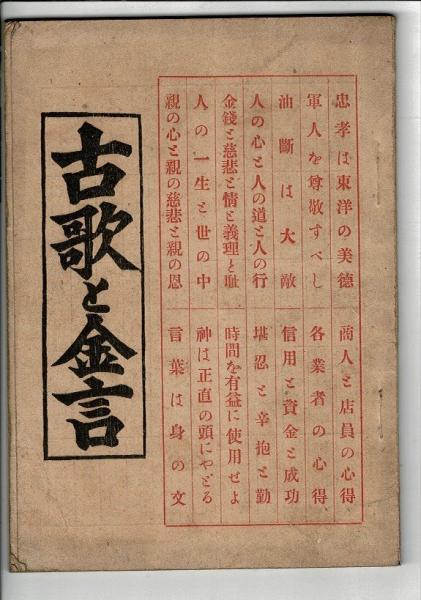 忠孝は東洋の美德
商人と店員の心得
軍人を尊敬すべし
各業者の心得、
油斷は大敵
信用と資金と成功
人の心と人の道と人の行
堪忍と辛抱と勤
金錢と慈悲と情と義理と耻
時間を有益に使用せよ
人の一生と世の中
神は正直の頭にやどる
親の心と親の慈悲と親の恩
言葉は身の文
古歌と金言